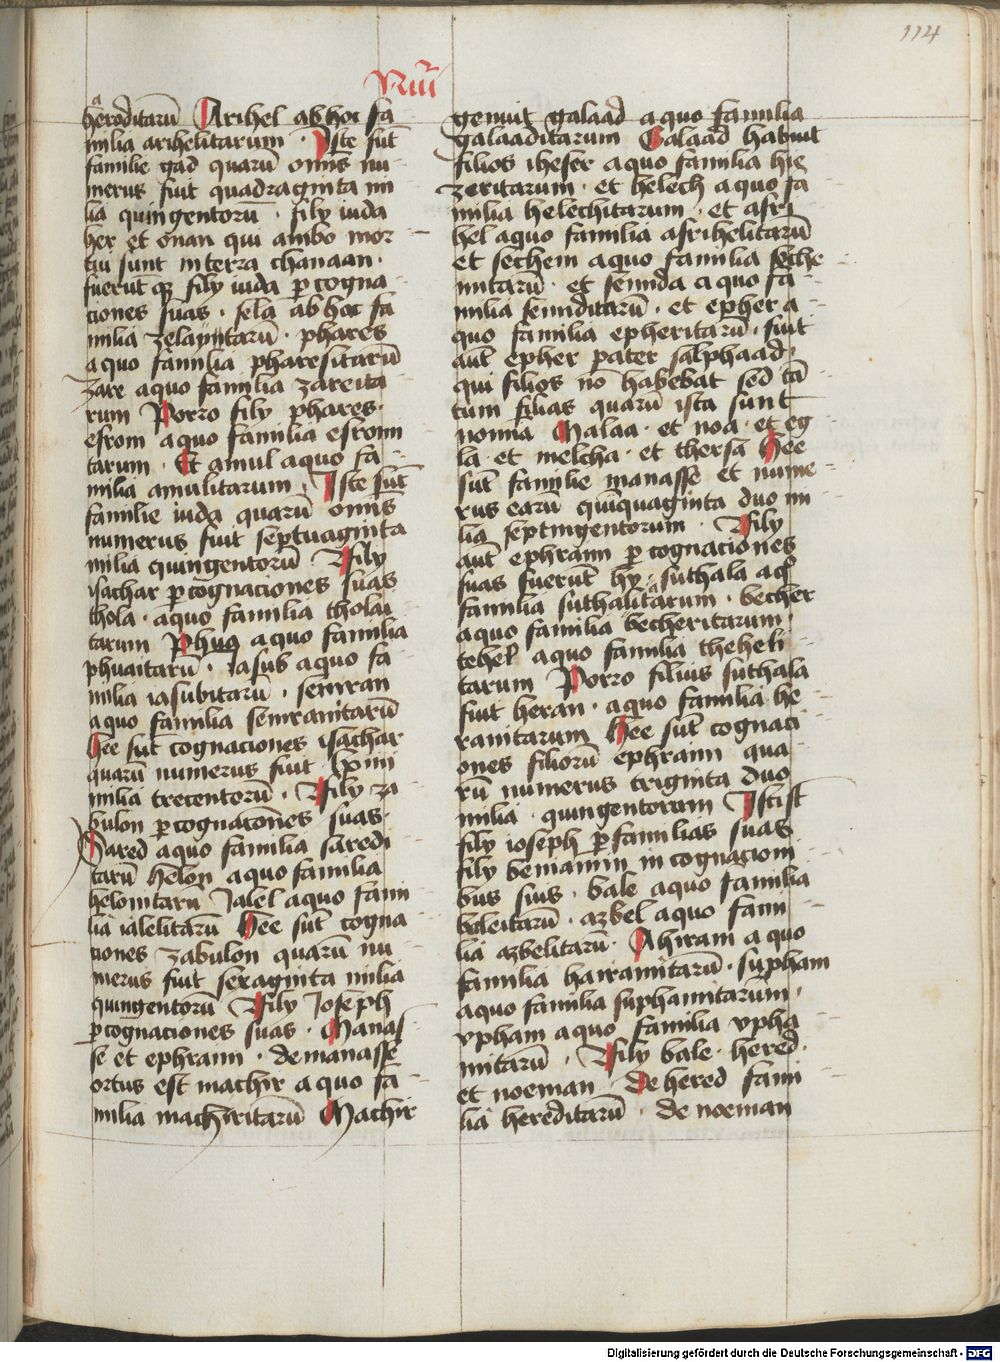 114
Nūi
heroditarū Arihel ab hoc fa
milia arihelitarum · Iste sūt
familie gad quarū omīs nu
merus fuit quadraginta mi
lia quingentorū · fily iuda
her et onan qui ambo mor
tui sunt in terra chanaan ·
fuerūt qꝫ fily iuda ꝑ cogna
ciones suas · sela ab hoc fa
milia zelayitarū · phares
a quo familia pharesitarū
zare a quo familia zareita
rum Porro fily phares ·
esrom a quo familia esromi
tarum · Et amul a quo fa
milia amulitarum · Iste sūt
familie iuda quarū omīs
numerus fuit septuaginta
milia quingentorū Fily
isachar ꝑ cognaciones suas
thola · a quo familia tholai
tarum Phua a quo familia
phuaitarū · iasub a quo fa
milia iasubitarū · semran
a quo familia semranitarū
Hee sūt cognaciones isachar
quarū numerus fuit lxiiii
milia trecentorū · Fily za
bulon ꝑ cognacōnes suas ·
Sared a quo familia saredi
tarū helon a quo familia
helonitarū Ialel a quo fami
lia ialelitarū Hee sūt cogna
ciones zabulon quarū nu
merus fuit sexaginta milia
quingentorū Fily Ioseph
ꝑ cognaciones suas · Manas
se et ephraim · de manasse
ortus est machir a quo fa
milia machiritarū Machir
genuit galaad a quo familia
galaaditarum Galaad habuit
filios iheser a quo familia hie
zeritarum · et helech a quo fa
milia helechitarum · et asri
hel a quo familia asrihelitarū
et sechem a quo familia seche
mitarū · et semida a quo fa
milia semiditarū · et epher a
quo familia epheritarū · fuit
aūt epher pater salphaad ·
qui filios nō habebat sed tā
tum filias quarū ista sunt
nomīa Malaa · et noa · et eg
la · et melcha · et thersa Hee
sūt familie manasse et nume
rus earū quīquaginta duo mi
lia septingentorum · Fily
aūt ephraim ꝑ cognaciones
suas fuerūt hy · suthala a q̊
familia suthalitarum · becher
a quo familia becheritarum ·
tehel a quo familia theheli
tarum Porro filius suthala
fuit heran · a quo familia he
ranitarum Hee sūt cognaci
ones filiorū ephraim qua
rū numerus triginta duo
milia · quingentorum Isti sūt
fily ioseph ꝑ familias suas
fily beniamin in cognacioni
bus suis · bale a quo familia
baleitarū · azbel a quo fami
lia azbelitarū · Ahiram a quo
familia hairamitarū · supham
a quo familia suphamitarum ·
vpham a quo familia vpha
mitarū · Fily bale · hered
et noeman De hered fami
lia hereditarū · de noeman
Digitalisierung gefördert durch die Deutsche Forschungsgemeinschaft - DFG